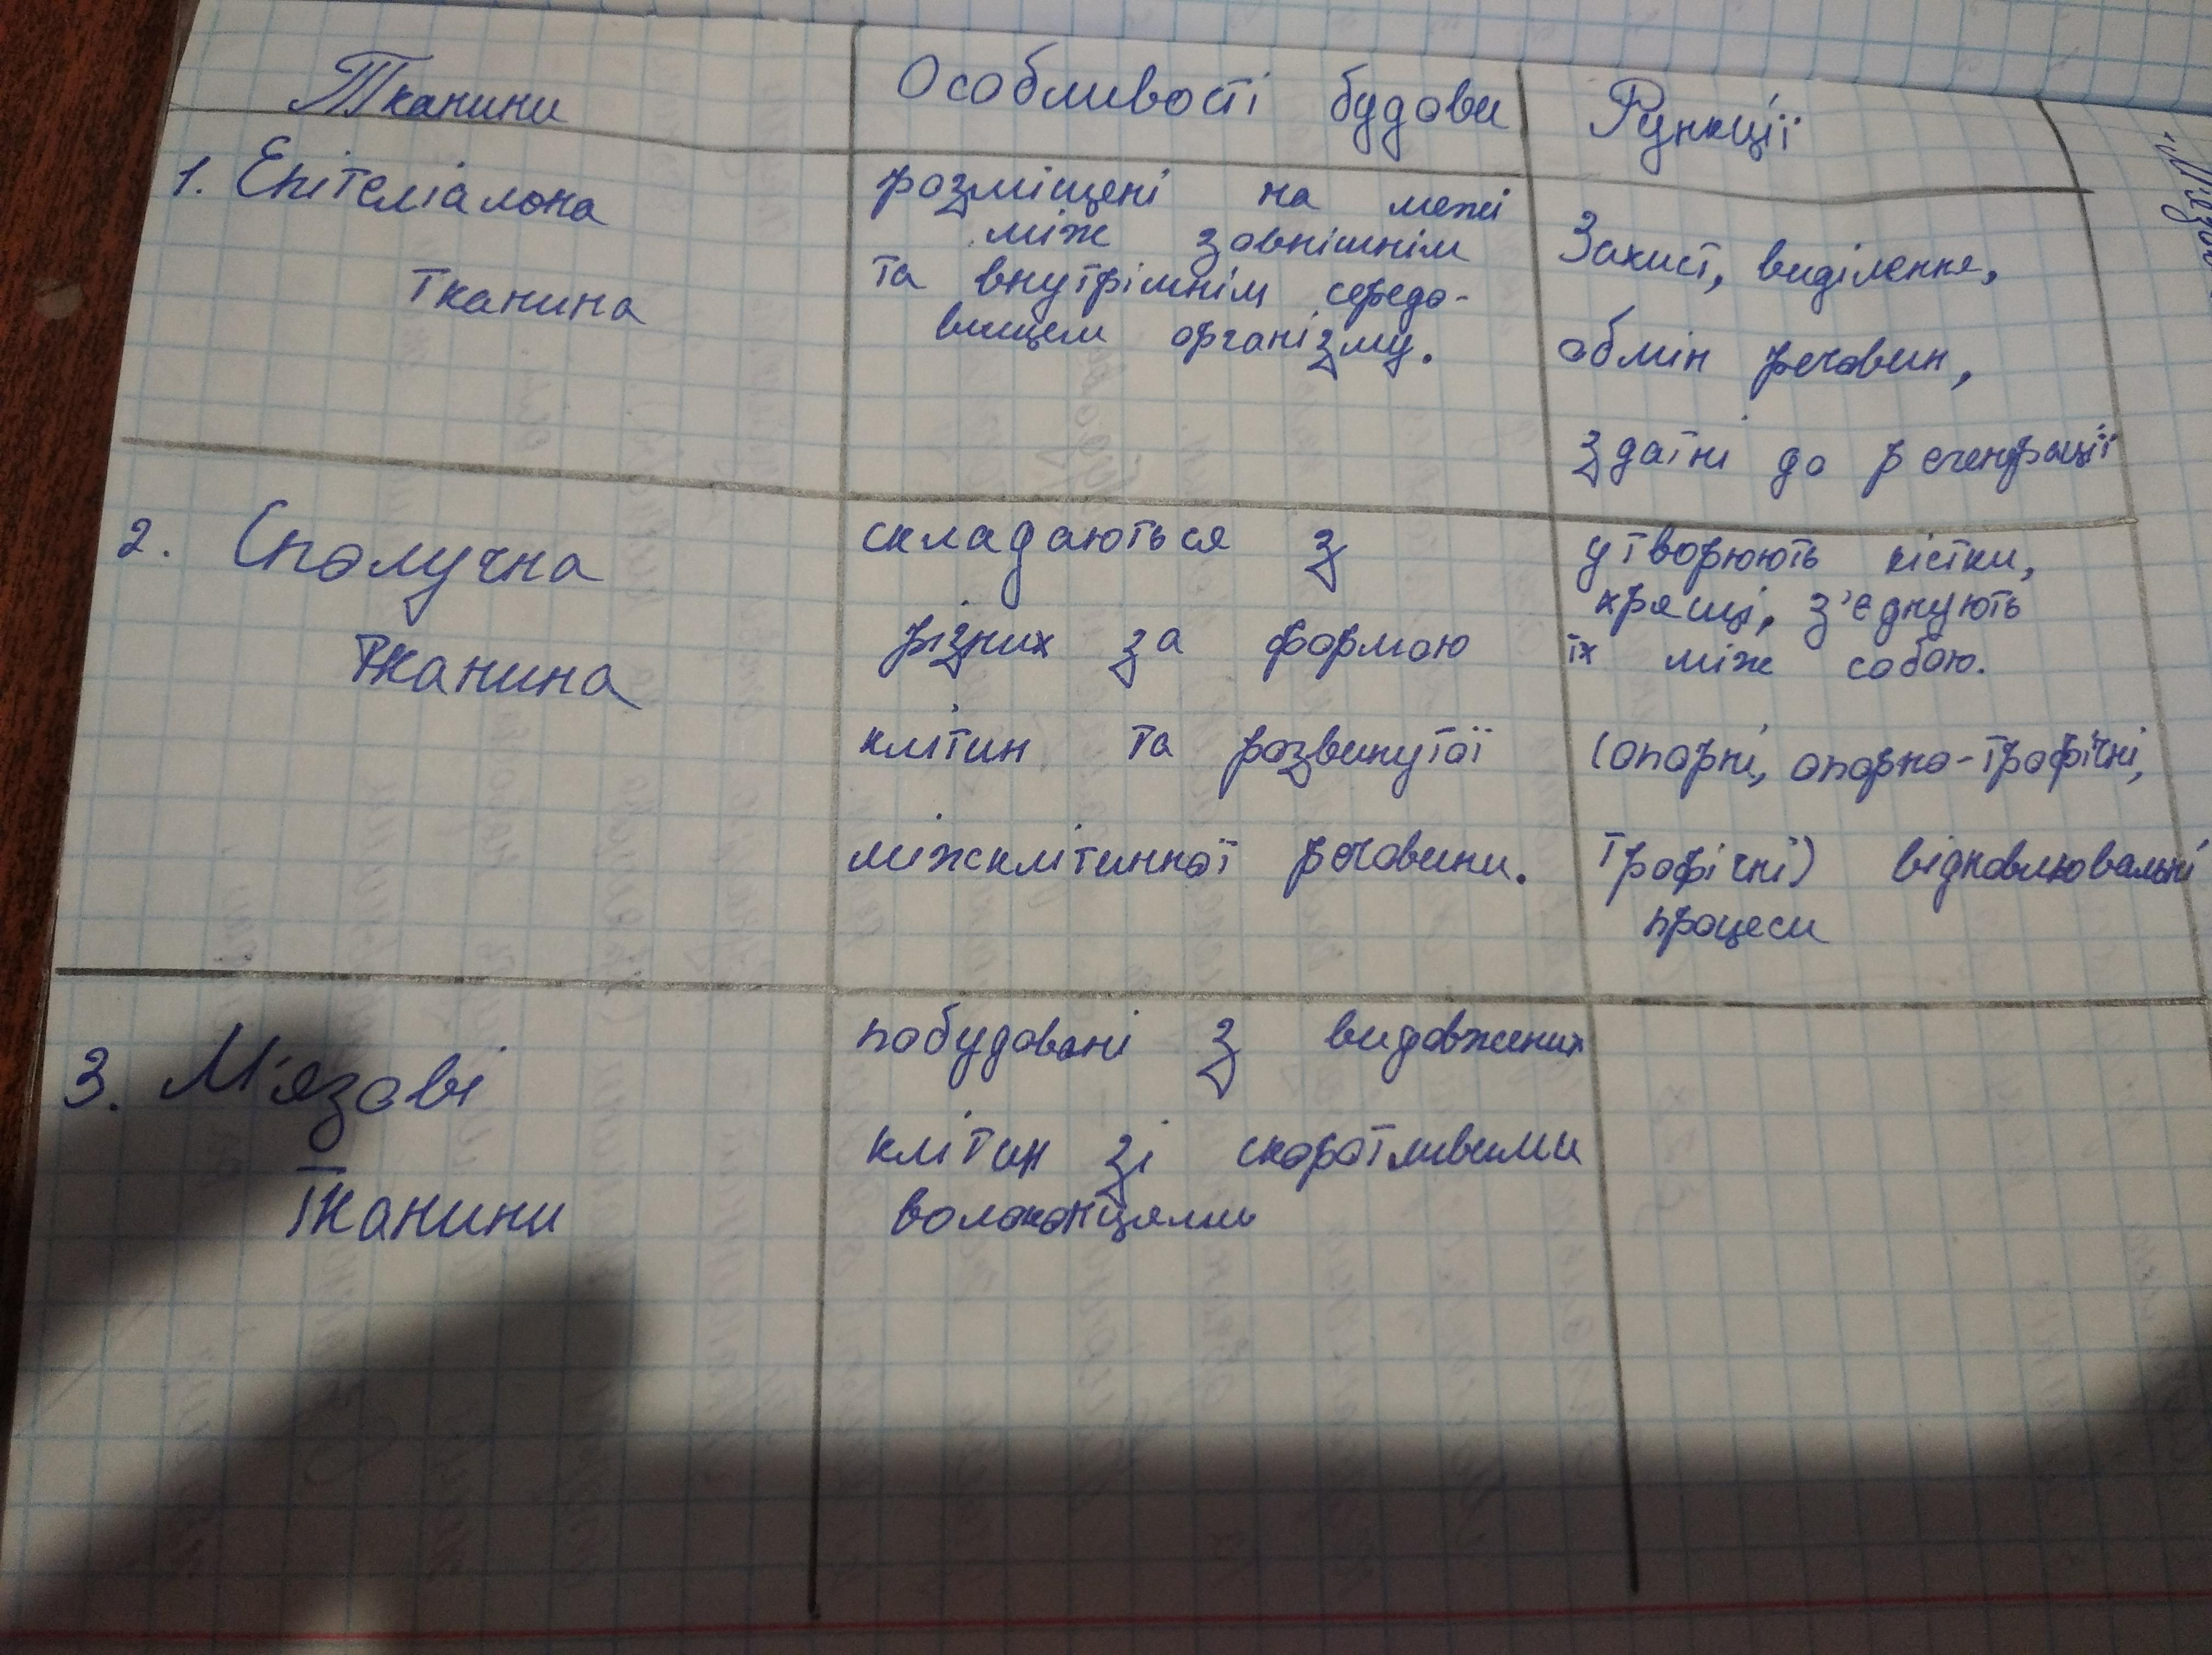 Тканини
Особливості будови
Функції
1. Епітеліальна
тканина
розміщені на межі
між зовнішнім
та внутрішнім середо-
вищем організму.
Захист, виділення,
обмін речовин,
здатні до регенрації
2. Сполучна
тканина
складаються з
різних за формою
клітин та розвинутої
міжклітинної речовини.
утворюють кістки,
хрящі, з'єднують
їх між собою.
(опорні, опорно-трофічні,
трофічні) відновлювальні
процеси
3. М'язові
тканини
побудовані з видовжених
клітин зі скоротливими
волоконцями